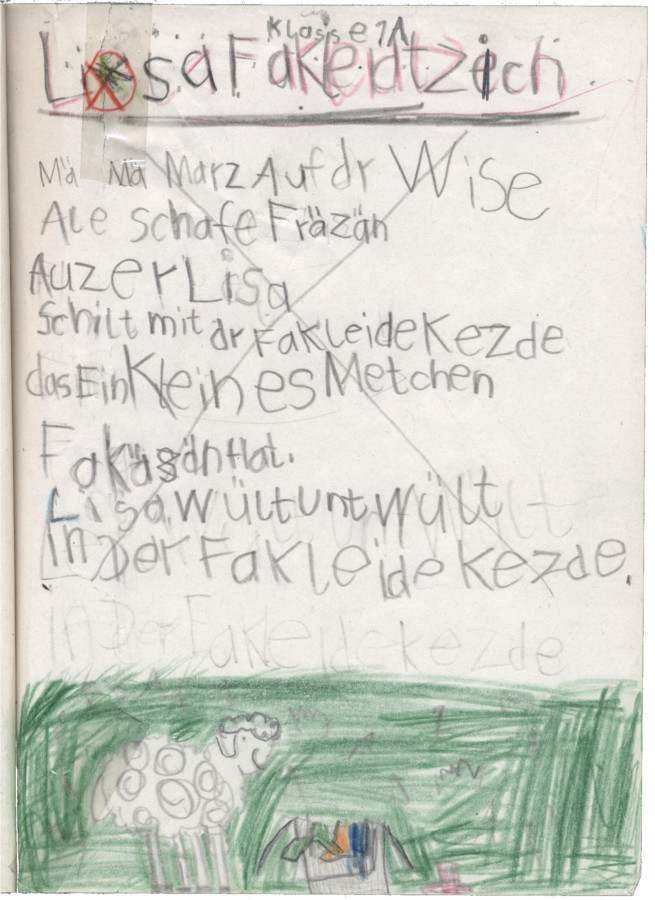 Klasse 1A
Lisa Fakledtzich
Mä Mä Marz Auf dr Wise
Ale schafe Fräzän
Auzer Lisa
Schilt mit dr Fakleide Kezde
das Ein Kleines Metchen
Fakäsän hat.
Lisa wült unt wült
in Der Fakleide Kezde.
In Der Fakleidekezde